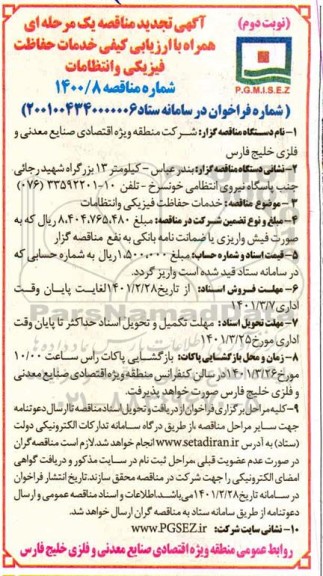 (نوبت دوم)
آگهی تجدید مناقصه یک مرحله ای
همراه با ارزیابی کیفی خدمات حفاظت
فیزیکی و انتظامات
شماره مناقصه ۱۴۰۰/۸
P.G.M.I.S.E.Z
(شماره فراخوان در سامانه ستاد ۲۰۰۱۰۰۴۳۴۰۰۰۰۰۰۶)
۱- نام دستگاه مناقصه گزار: شرکت منطقه ویژه اقتصادی صنایع معدنی و
فلزی خلیج فارس
۲- نشانی دستگاه مناقصه گزار: بندر عباس - کیلومتر ۱۳ بزرگراه شهید رجائی
جنب پاسگاه نیروی انتظامی خونسرخ - تلفن ۱۰-۳۳۵۹۲۲۰۱ (۰۷۶)
۳- موضوع مناقصه: خدمات حفاظت فیزیکی وانتظامات
۴- مبلغ و نوع تضمین شرکت در مناقصه: مبلغ ۸،۴۰۴،۷۶۵،۴۸۰ ریال که به
صورت فیش واریزی یا ضمانت نامه بانکی به نفع مناقصه گزار
۵- قیمت اسناد و شماره حساب: مبلغ ۱،۵۰۰،۰۰۰ ریال به شماره حسابی که
در سامانه ستاد قید شده است واریز گردد.
۶- مهلت فروش اسناد: از تاریخ ۱۴۰۱/۲/۲۸ لغایت پایان وقت
اداری ۱۴۰۱/۳/۷
۷- مهلت تحویل اسناد: مهلت تکمیل و تحویل اسناد حداکثر تا پایان وقت
اداری مورخ ۱۴۰۱/۳/۲۵
۸- زمان و محل بازگشایی پاکات: بازگشایی پاکات رأس ساعت ۱۰/۰۰
مورخ ۱۴۰۱/۳/۲۶ در سالن کنفرانس منطقه ویژه اقتصادی صنایع معدنی و
فلزی خلیج فارس صورت خواهد پذیرفت.
۹- کلیه مراحل برگزاری فراخوان از دریافت و تحویل اسناد مناقصه تا ارسال دعوتنامه
جهت سایر مراحل مناقصه، از طریق درگاه سامانه تدارکات الکترونیکی دولت
(ستاد) به آدرس www.setadiran.ir انجام خواهد شد. لازم است مناقصه گران
در صورت عدم عضویت قبلی، مراحل ثبت نام در سایت مذکور و دریافت گواهی
امضای الکترونیکی را جهت شرکت در مناقصه محقق سازند. تاریخ انتشار فراخوان
در سامانه تاریخ ۱۴۰۱/۲/۲۸ می باشد. اطلاعات و اسناد مناقصه عمومی و ارسال
دعوتنامه از طریق سامانه ستاد به مناقصه گران ارسال خواهد شد.
۱۰- نشانی سایت شرکت: www.PGSEZ.ir
روابط عمومی منطقه ویژه اقتصادی صنایع معدنی و فلزی خلیج فارس